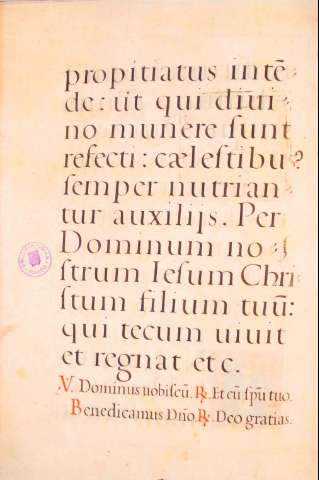 propitiatus intē⸗
de: ut qui diui⸗
no munere ſunt
refecti: cæleſtibuʒ
ſemper nutrian⸗
tur auxilijs. Per
Dominum no⸗
ſtrum Ieſum Chri
ſtum filium tuū:
qui tecum uiuit
et regnat etc.
℣. Dominus uobiſcū. ℟. Et cū ſpū tuo.
Benedicamus Dño. ℟. Deo gratias.